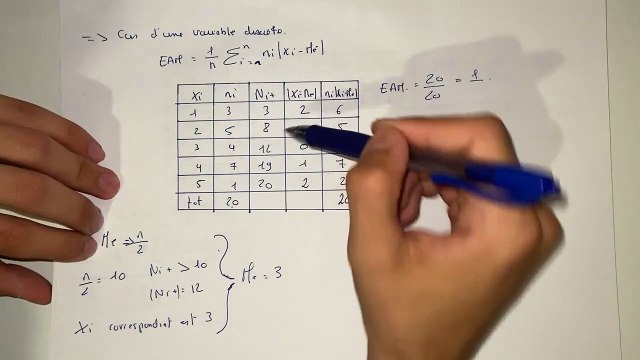 => Cas d'une variable discrète.
EAM = 1/n ∑ⁿᵢ₌₁ ni|xi - Me|
EAM. = 20/20 = 1.
xi ni Ni+ |xi-Me| ni|xi-Me|
1 3 3 2 6
2 5 8 5
3 4 12 0
4 7 19 1 7
5 1 20 2 2
tot 20 20
Me => n/2
n/2 = 10 Ni+ > 10
(Ni+) = 12
Me = 3
Xi correspondant est 3